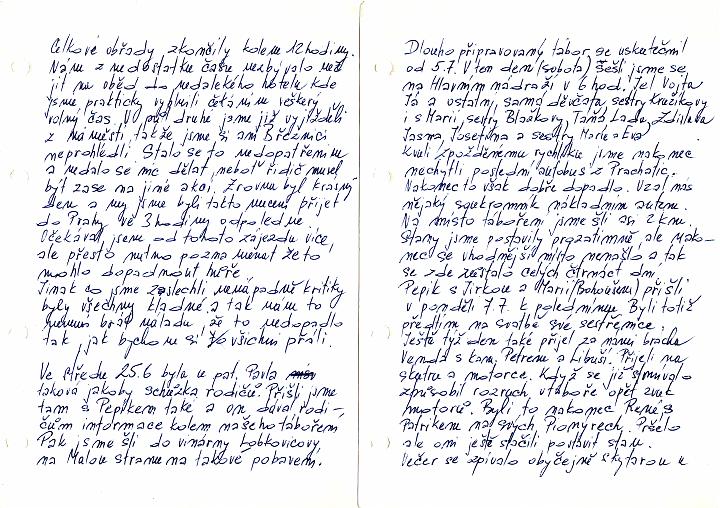 Celkové obřady skončily kolem 12 hodiny.
Nám z nedostatku času nezbývalo než
jít na oběd do nedalekého hotelu kde
jsme prakticky vyplnili četáním veškerý
volný čas. V půl druhé jsme již vyjížděli
z náměstí takže jsme si ani Březnici
neprohledli. Stalo se to nedopatřením
a nedalo se nic dělat neboť řidič musel
být zase na jiné akci. Zrovna byl krásný
den a my jsme byli takto nuceni přijet
do Prahy ve 3 hodiny odpoledne.
Očekával jsem od tohoto zájezdu více,
ale přesto nutno poznamenat že to
mohlo dopadnout hůře.
Jinak co jsme zaslechli nenápadně kritiky
byly všechny kladné a tak nám to
nemusí brát náladu, že to nedopadlo
tak, jak bychom si to všichni přáli.
Ve středu 25.6 byla u pat. Pavla
taková jakoby schůzka rodičů. Přišli jsme
tam s Pepíkem také a on dával rodi-
čům informace kolem našeho táboření
Pak jsme šli do vinárny Lobkovicovy
na Malou stranu na takové pobavení.
Dlouho připravovaný tábor se uskutečnil
od 5.7. V ten den (sobota) sešli jsme se
na Hlavním nádraží v 6 hod. Jel Vojta
Já a ostatní, samá děvčata, sestry Kružíkovy
i s Marií, sestry Blažkovy, Táňa Lada, Zdislava
Jasma, Josefina a sestry Marie a Eva
Kvůli zpožděnému rychlíku jsme nakonec
nechytli poslední autobus z Prachatic.
Nakonec to však dobře dopadlo. Vzal nás
nějaký soukromník nákladním autem.
Na místo táboření jsme šli asi 2 km.
Stany jsme postavily prozatimně, ale nako-
nec se vhodnější místo nenašlo a tak
se zde zůstalo celých čtrnáct dní.
Pepík s Jirkou a Marií (Bohoušem) přišli
v pondělí 7.7. k poledminu. Byli totiž
předtím na svatbě své sestřenice.
Ještě týž den také přijel za námi bracha
Venda s kam. Petrem a Libuší. Přijeli na
skútru a motorce. Když se již stmívalo
způsobil rozruch v táboře opět zvuk
motorů. Byli to nakonec René s
Patrikem na svých Pionýrech. Pršelo
ale oni ještě stačili postavit stan.
Večer se zpívalo obyčejně s kytarou u